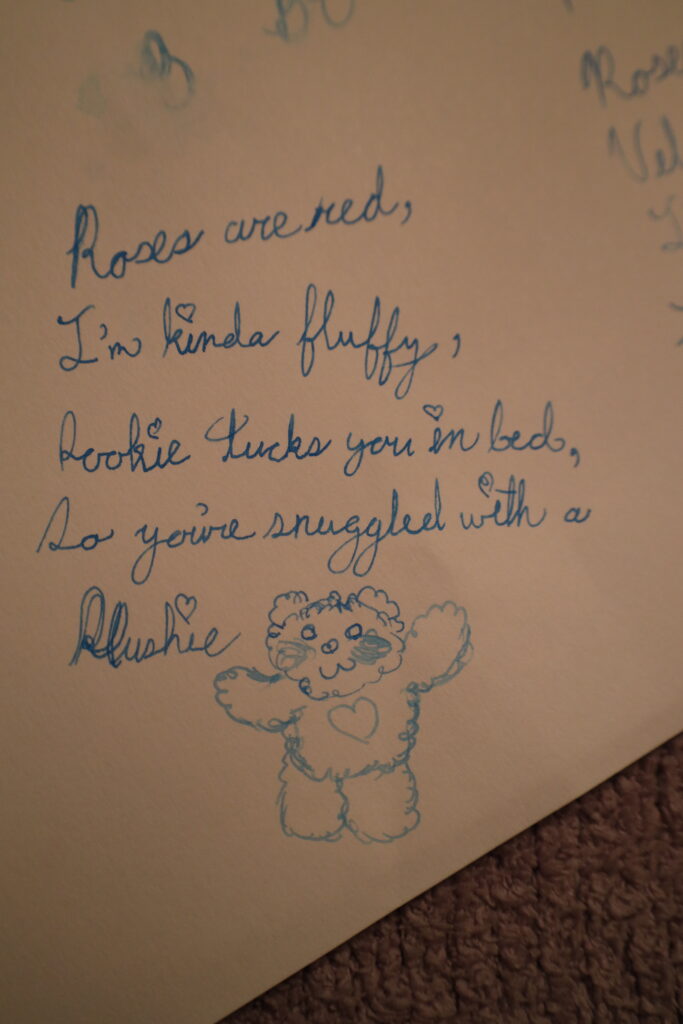 Roses are red,
I'm kinda fluffy,
Rookie tucks you in bed,
So you're snuggled with a
Plushie
Rose
Vel